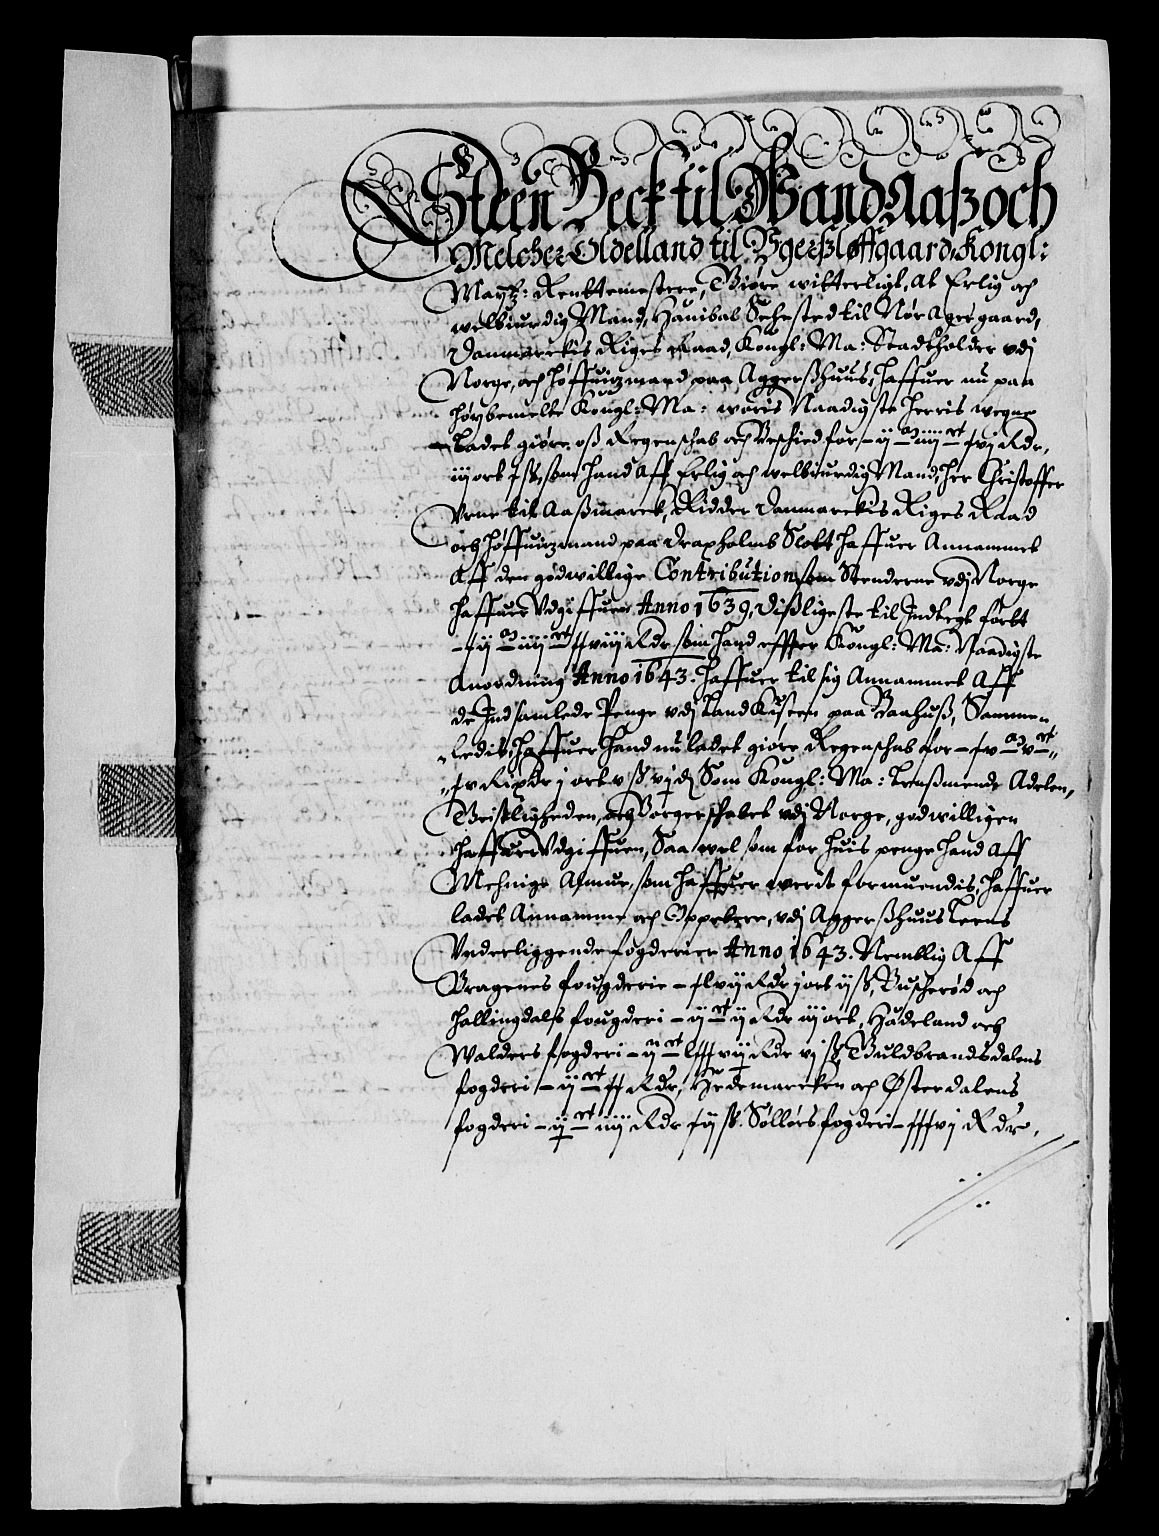 Steen Beck til WandAaß och
Melcher Oldelland til Ugerßløffgaard, Kongl:
Maytz: Renttemestere, Giøre witterligt, At Erlig och
welbiurdig Mand, Hanibal Sehested til Nør Ager gaard,
Danmarckis Riges Raad, Kongl: Ma: Stadtholder udj
Norge, och Høffuitzmand paa Aggerßhuus, Haffuer nu paa
høybemelte Kongl: Ma: woris Naadigste Herris wegne
Ladet giøre oß Regenschab och Beschied for
iij ort som Hand Aff Erlig och welbiurdig Mand, Her Christoffer
Urne til Aaßmarck, Ridder Danmarckis Riges Raad
och Høffuitzmand paa Draxholmb Slott Haffuer Annammet
Aff den godwillige Contribution, som Stenderne udj Norge
haffuer Udgiffuen Anno 1639, Dißligeste til Indtegt ført
Rdr som Hand effter Kongl: Ma: Naadigste
Anordning Anno 1643. Haffuer til sig Annammet Aff
de Indsamlede Penge udj Land Kisten paa Baahuß, Sammen
ledis Haffuer Hand nu ladet giøre Regenschab for
j ort Som Kongl: Ma: Lensßmend, Adelen,
Geistligheden, och Borgerschabet udj Norge, godwilligen
haffuer Udgiffuen, Saa wel som for huis penge Hand Aff
Mehnige Almue, som haffuer werit formuendis, Haffuer
ladet Annamme och Oppebere, udj Aggerßhuus Leens
Underliggende fogderier Anno 1643. Nemblig Aff
Bragenes fougderie - xlvij Rdr j ort ij ß, Buscherød och
Hallingdals fougderi - ij Rdr iij ort, Hadeland och
Walders fogderi - Rdr vj ß Guldbrandsdalens
fogderi - Rdr, Hedemarcken och Østerdalens
fogderi - iiij Rdr Sollørs fogderi - xxxvj Rdr,